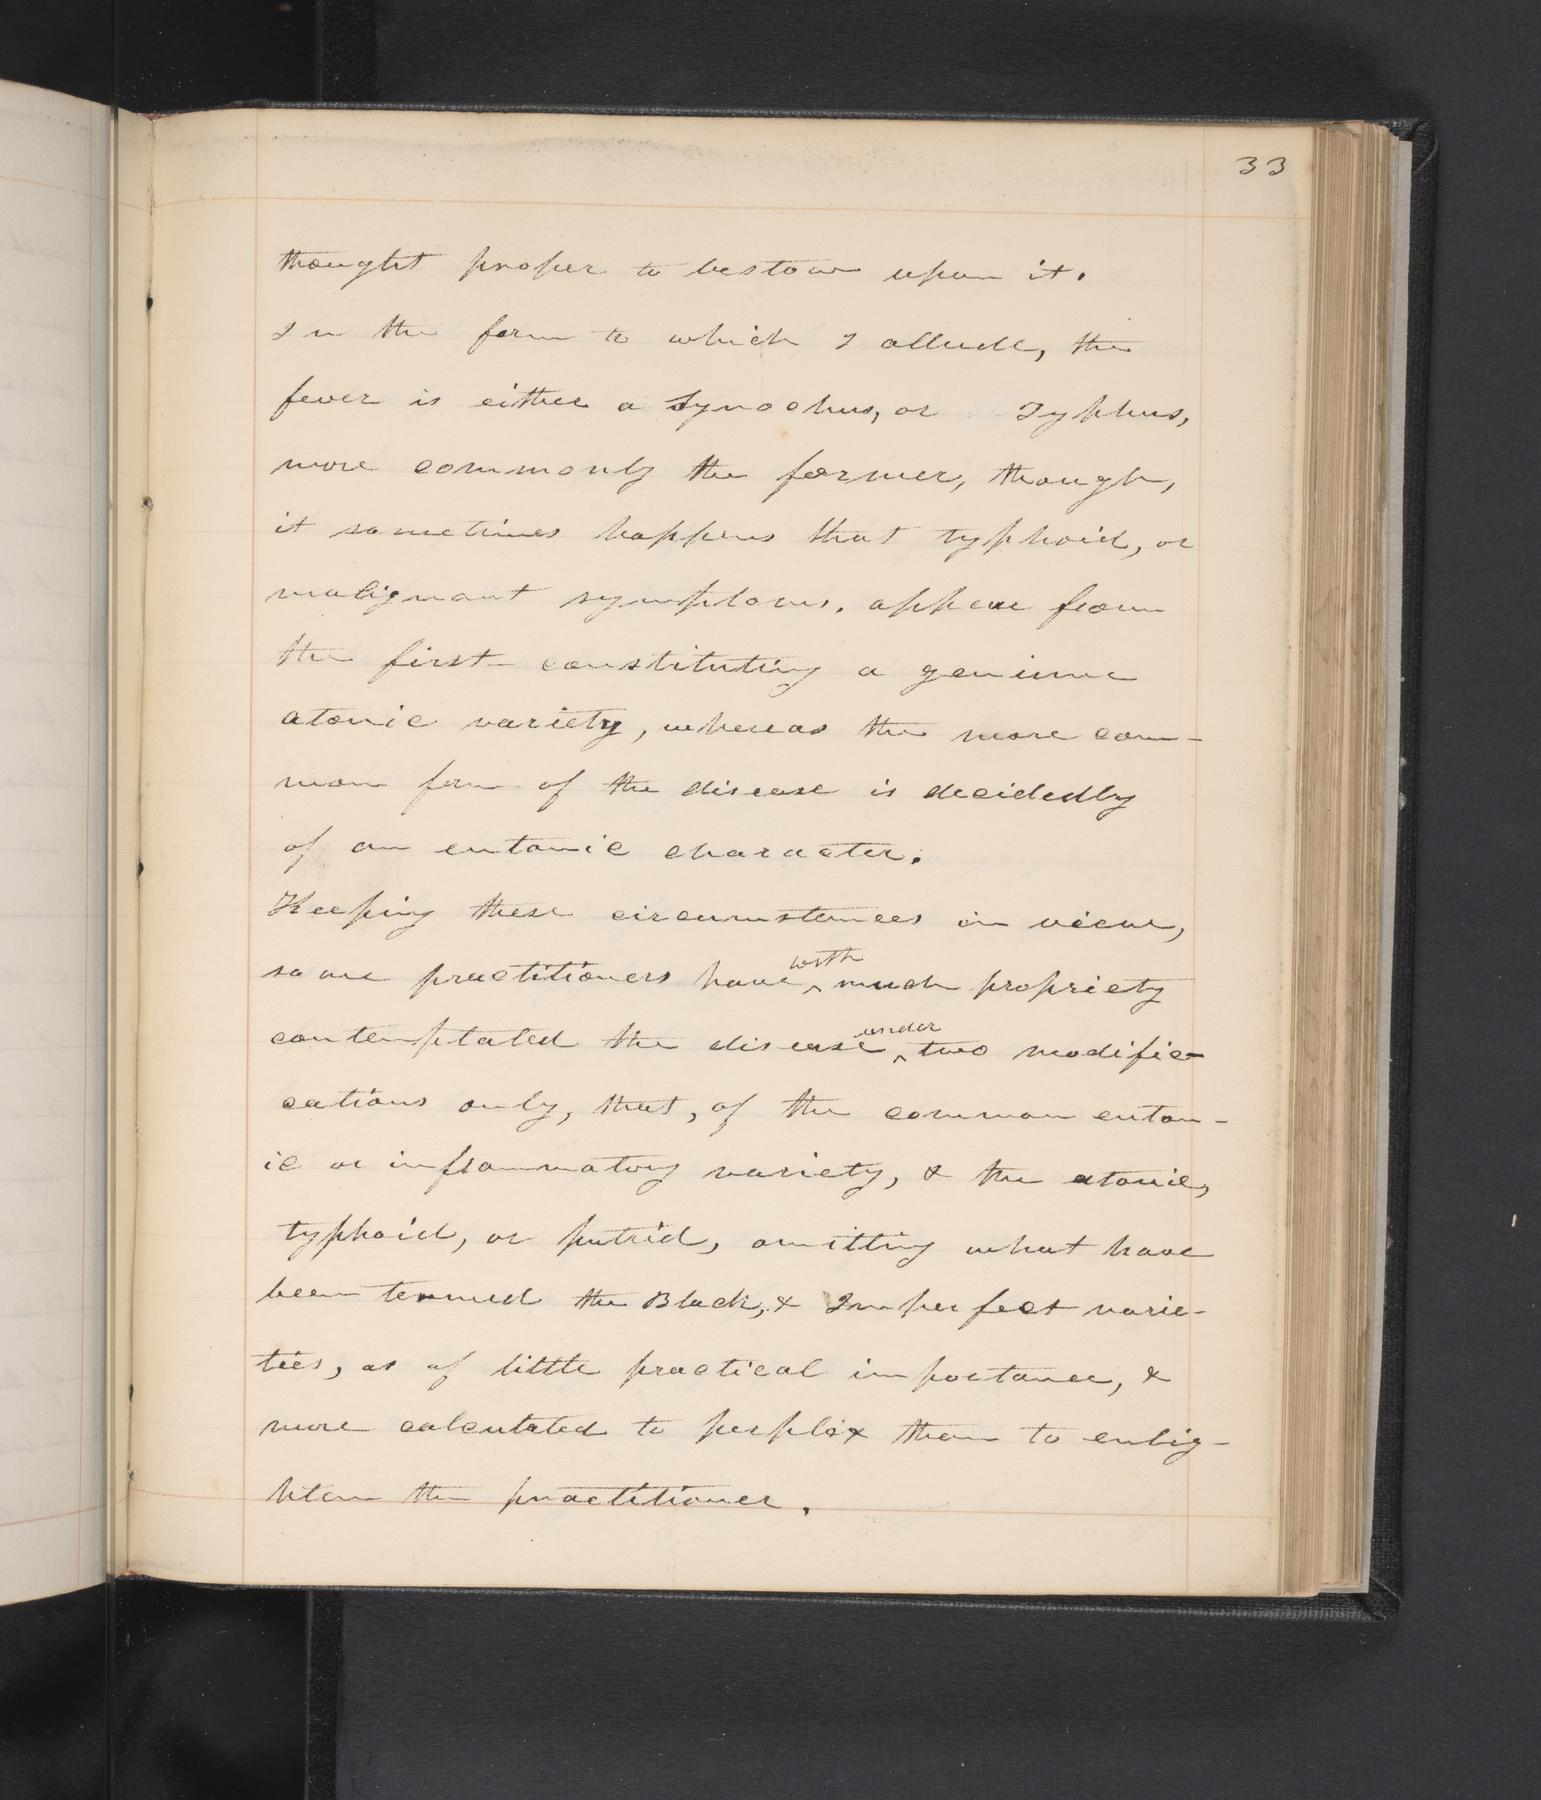 33
thought proper to bestow upon it.
In the form to which I allude, the
fever is either a Synochus, or Typhus,
more commonly the former, though,
it sometimes happens that typhoid, or
malignant symptoms, appear from
the first constituting a genuine
atonic variety, whereas the more com-
mon form of the disease is decidedly
of an entonic character.
Keeping these circumstances in view,
some practitioners have with much propriety
contemplated the disease under two modific
cations only, that, of the common enton-
ic or inflammatory variety, & the atonic,
typhoid, or putrid, omitting what have
been termed the Black, & Imperfect varie-
ties, as of little practical importance, &
more calculated to perplex than to enlig-
hten the practitioner.